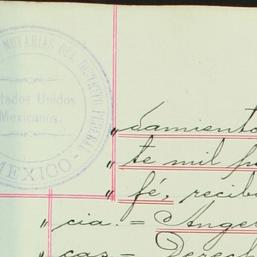 NOTARIAS DEL DISTRITO FEDERAL
Estados Unidos
Mexicanos.
MEXICO
„ damiento
„ te mil
„ fé, recib
„ cia. = Ange
„ cas = Derech